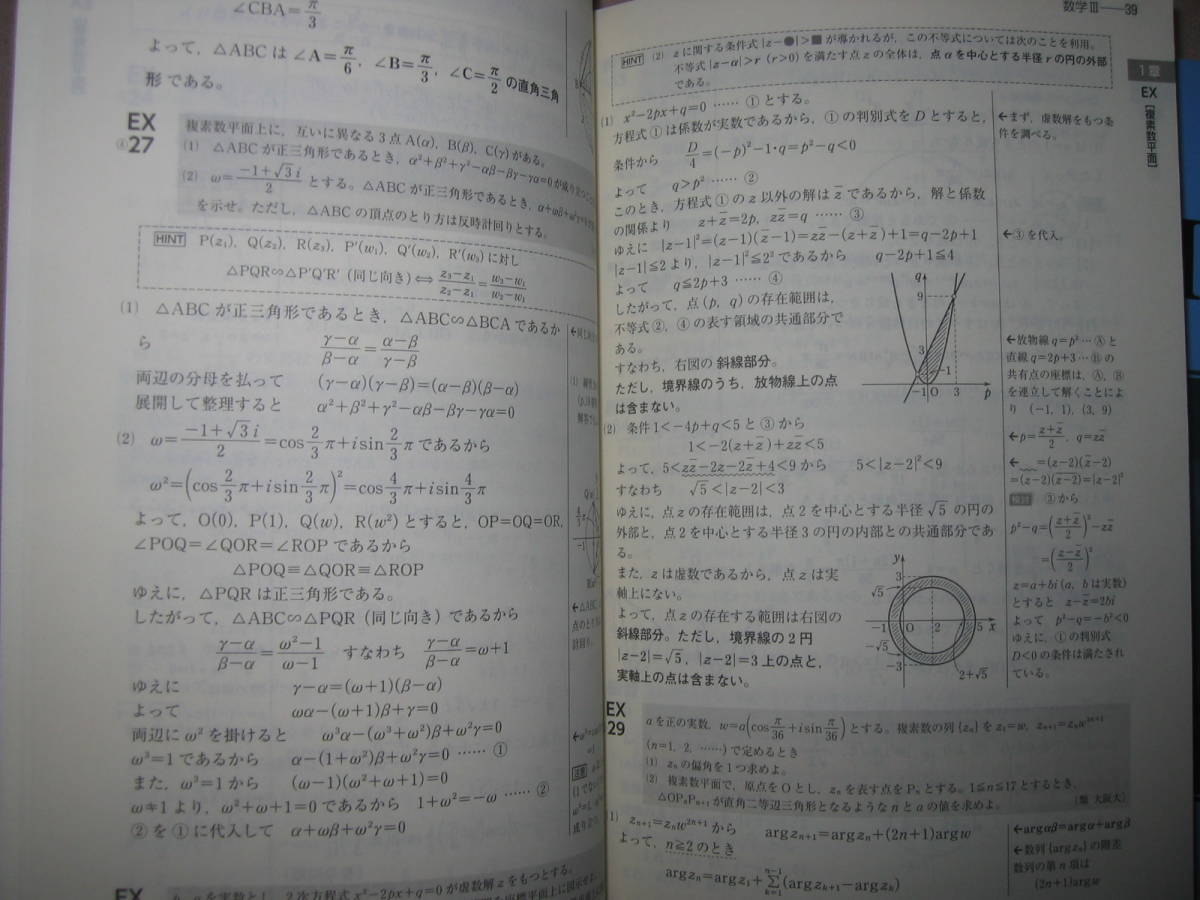 ∠CBA=π/3
よって，△ABC は ∠A=π/6，∠B=π/3，∠C=π/2 の直角三角
形である。
EX
④27
複素数平面上に，互いに異なる3点 A(α)，B(β)，C(γ) がある。
(1) △ABC が正三角形であるとき，α²+β²+γ²−αβ−βγ−γα=0 が成り立つこと
(2) ω=(−1+√3 i)/2 とする。△ABC が正三角形であるとき，α+ωβ+ω²γ=0
を示せ。ただし，△ABC の頂点のとり方は反時計回りとする。
HINT P(z₁)，Q(z₂)，R(z₃)，P′(w₁)，Q′(w₂)，R′(w₃) に対し
△PQR∽△P′Q′R′ (同じ向き) ⟺ (z₃−z₁)/(z₂−z₁)=(w₃−w₁)/(w₂−w₁)
(1) △ABC が正三角形であるとき，△ABC∽△BCA であるか
ら (γ−α)/(β−α)=(α−β)/(γ−β)
両辺の分母を払って (γ−α)(γ−β)=(α−β)(β−α)
展開して整理すると α²+β²+γ²−αβ−βγ−γα=0
(2) ω=(−1+√3 i)/2=cos 2/3 π+i sin 2/3 π であるから
ω²=(cos 2/3 π+i sin 2/3 π)²=cos 4/3 π+i sin 4/3 π
よって，O(0)，P(1)，Q(w)，R(w²) とすると，OP=OQ=OR，
∠POQ=∠QOR=∠ROP であるから
△POQ≡△QOR≡△ROP
ゆえに，△PQR は正三角形である。
したがって，△ABC∽△PQR (同じ向き) であるから
(γ−α)/(β−α)=(ω²−1)/(ω−1) すなわち (γ−α)/(β−α)=ω+1
ゆえに γ−α=(ω+1)(β−α)
よって ωα−(ω+1)β+γ=0
両辺に ω² を掛けると ω³α−(ω³+ω²)β+ω²γ=0
ω³=1 であるから α−(1+ω²)β+ω²γ=0 …… ①
また，ω³=1 から (ω−1)(ω²+ω+1)=0
ω≠1 より，ω²+ω+1=0 であるから 1+ω²=−ω …… ②
② を ① に代入して α+ωβ+ω²γ=0
EX
を実数とし，2次方程式 x²−2px+q=0 が虚数解 z をもつとする。
数学Ⅲ――39
1章
EX
[複素数平面]
HINT (2) z に関する条件式 |z−●|>■ が導かれるが，この不等式については次のことを利用。
不等式 |z−α|>r (r>0) を満たす点 z の全体は，点 α を中心とする半径 r の円の外部
である。
(1) x²−2px+q=0 …… ① とする。
方程式 ① は係数が実数であるから，① の判別式を D とすると，
条件から D/4=(−p)²−1・q=p²−q<0
よって q>p² …… ②
このとき，方程式 ① の z 以外の解は z̄ であるから，解と係数
の関係より z+z̄=2p，zz̄=q …… ③
ゆえに |z−1|²=(z−1)(z̄−1)=zz̄−(z+z̄)+1=q−2p+1
|z−1|≦2 より，|z−1|²≦2² であるから q−2p+1≦4
よって q≦2p+3 …… ④
したがって，点 (p, q) の存在範囲は，
不等式 ②，④ の表す領域の共通部分で
ある。
すなわち，右図の斜線部分。
ただし，境界線のうち，放物線上の点
は含まない。
q
9
3
1
−1
O
3
p
(2) 条件 1<−4p+q<5 と ③ から
1<−2(z+z̄)+zz̄<5
よって，5<zz̄−2z−2z̄+4<9 から 5<|z−2|²<9
すなわち √5<|z−2|<3
ゆえに，点 z の存在範囲は，点 2 を中心とする半径 √5 の円の
外部と，点 2 を中心とする半径 3 の円の内部との共通部分であ
る。
また，z は虚数であるから，点 z は実
軸上にない。
よって，点 z の存在する範囲は右図の
斜線部分。ただし，境界線の2円
|z−2|=√5，|z−2|=3 上の点と，
実軸上の点は含まない。
y
3
√5
−1
O
2
5
x
−√5
−3
2+√5
←まず，虚数解をもつ条
件を調べる。
←③ を代入。
←放物線 q=p² … Ⓐ と
直線 q=2p+3 … Ⓑ の
共有点の座標は，Ⓐ，Ⓑ
を連立して解くことによ
り (−1, 1)，(3, 9)
←p=(z+z̄)/2，q=zz̄
←＿=(z−2)(z̄−2)
=(z−2)(z−2)‾=|z−2|²
検討 ③ から
p²−q=((z+z̄)/2)²−zz̄
=((z−z̄)/2)²
z=a+bi (a, b は実数)
とすると z−z̄=2bi
よって p²−q=−b²<0
ゆえに，① の判別式
D<0 の条件は満たされ
ている。
EX
29
a を正の実数，w=a(cos π/36+i sin π/36) とする。複素数の列 {zₙ} を z₁=w，zₙ₊₁=zₙw²ⁿ⁺¹
(n=1, 2, ……) で定めるとき
(1) zₙ の偏角を1つ求めよ。
(2) 複素数平面で，原点を O とし，zₙ を表す点を Pₙ とする。1≦n≦17 とするとき，
△OPₙPₙ₊₁ が直角二等辺三角形となるような n と a の値を求めよ。
[類 大阪大]
1) zₙ₊₁=zₙw²ⁿ⁺¹ から arg zₙ₊₁=arg zₙ+(2n+1)arg w
よって，n≧2 のとき
arg zₙ=arg z₁+Σ[k=1, n−1](arg zₖ₊₁−arg zₖ)
←argαβ=argα+argβ
←数列 {arg zₙ} の階差
数列の第 n 項は
(2n+1)arg w